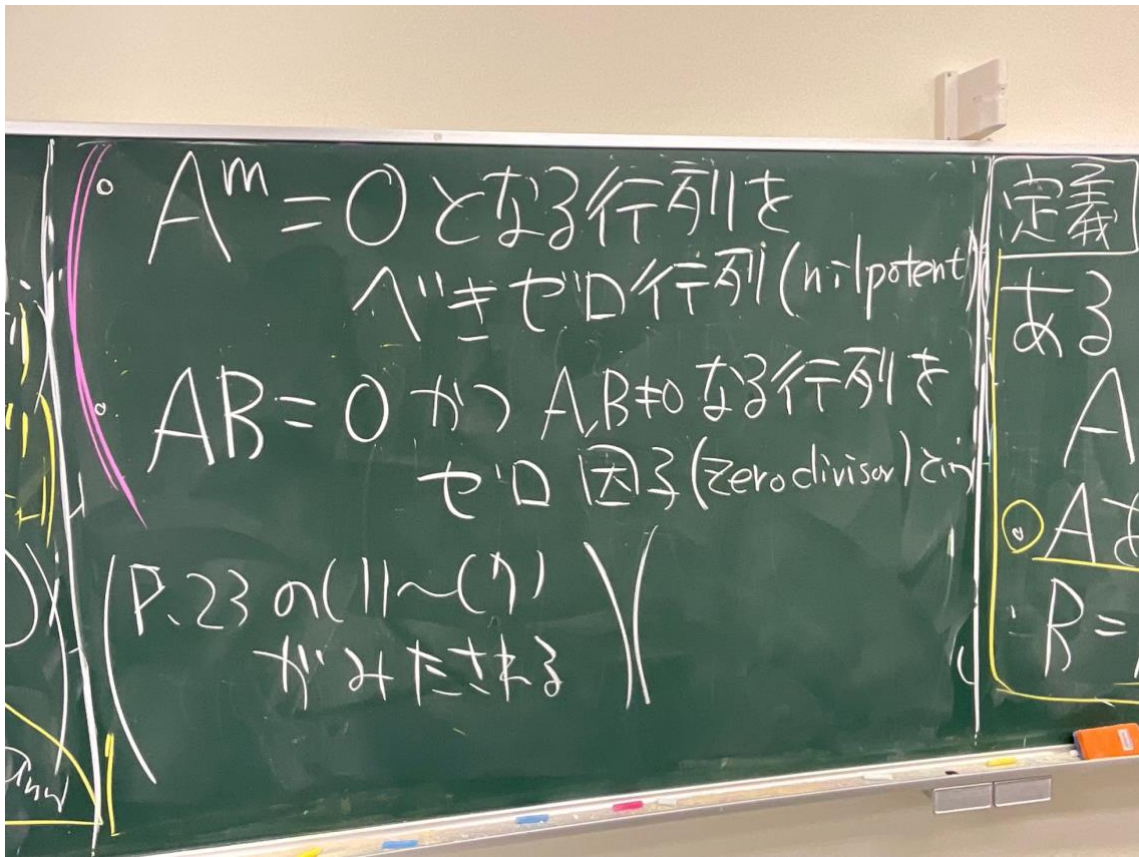 。A^m = 0 となる行列を
べきゼロ行列(nilpotent)
。AB = 0 かつ A,B≠0 なる行列を
ゼロ因子(zero divisor)とい
(P.23 の(1)〜(7)
がみたされる)
定義
ある
A
。Aを
∴R=